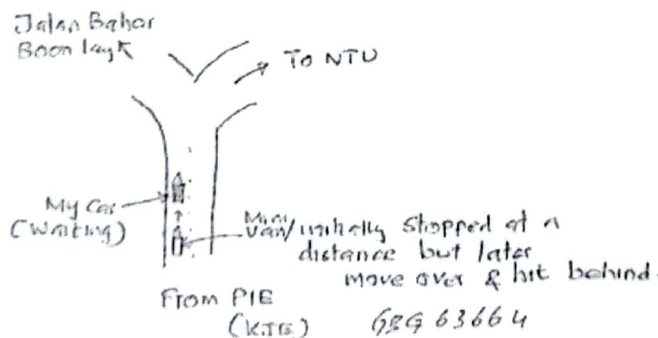 Jalan Bahar
Boon lay
To NTU
My Car
(Waiting)
Mini
van/ initially stopped at a
distance but later
move over & hit behind.
From PIE
(KJE)